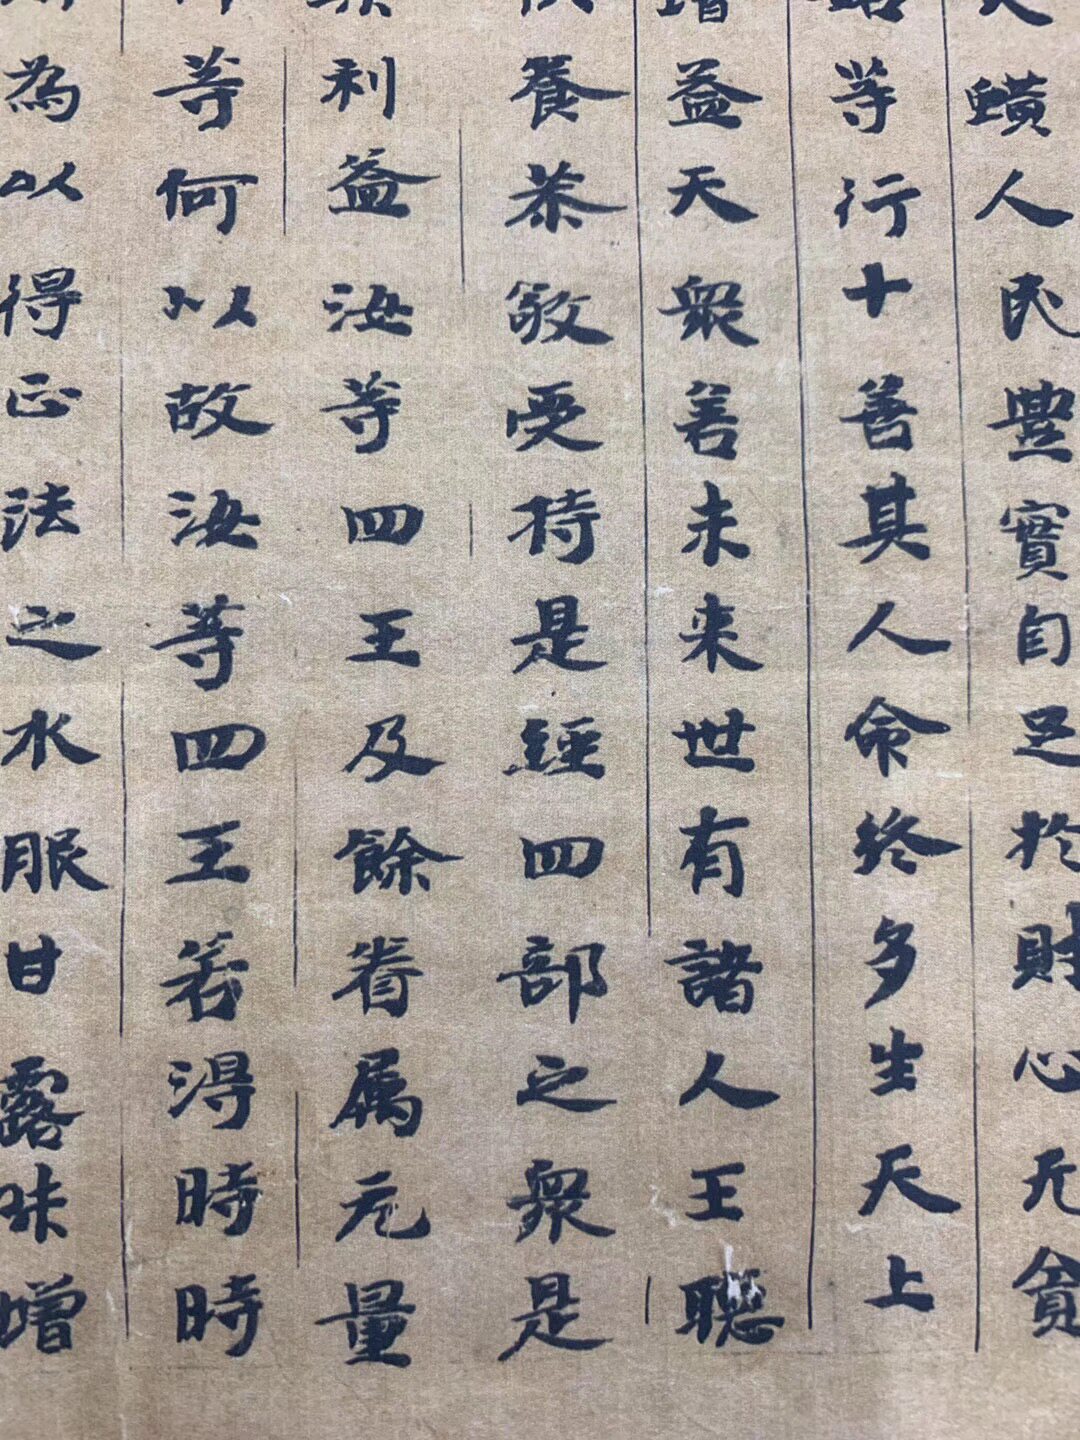 人民豐實自足於財心无貪
等行十善其人命終多生天上
增益天衆善未来世有諸人王聽
養恭敬受持是經四部之衆是
利益汝等四王及餘眷属无量
等何以故汝等四王若得時時
為以得正法之水服甘露味增